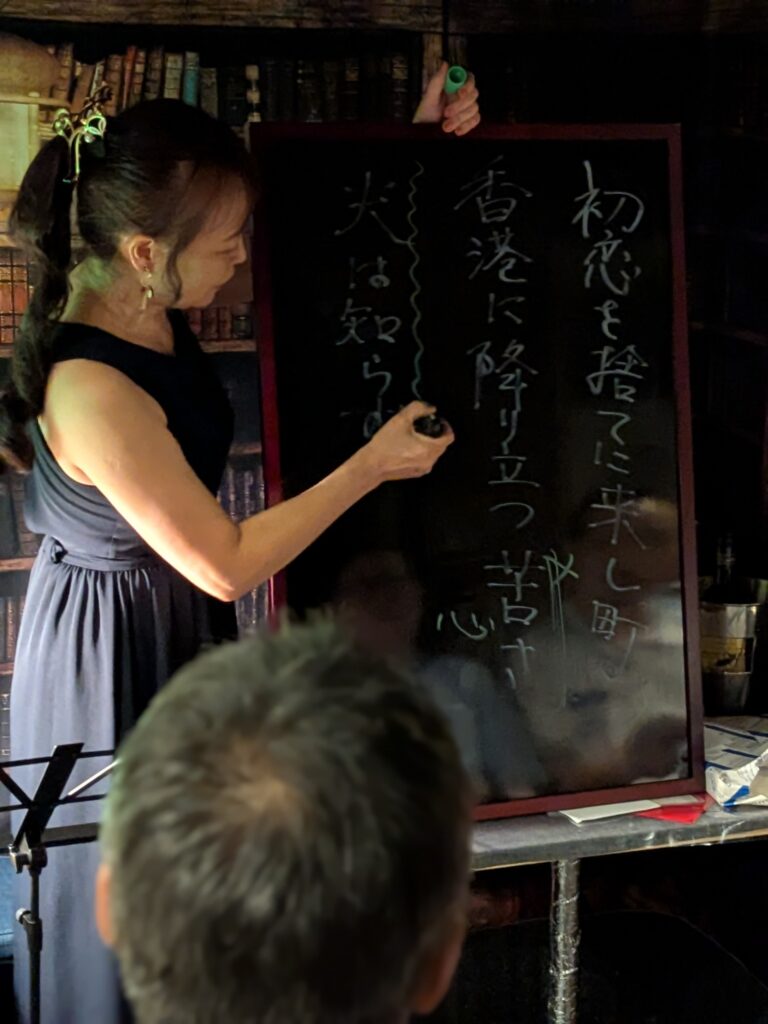 初恋を捨てに来し町
香港に降り立つ苦さ
心
火は知らず